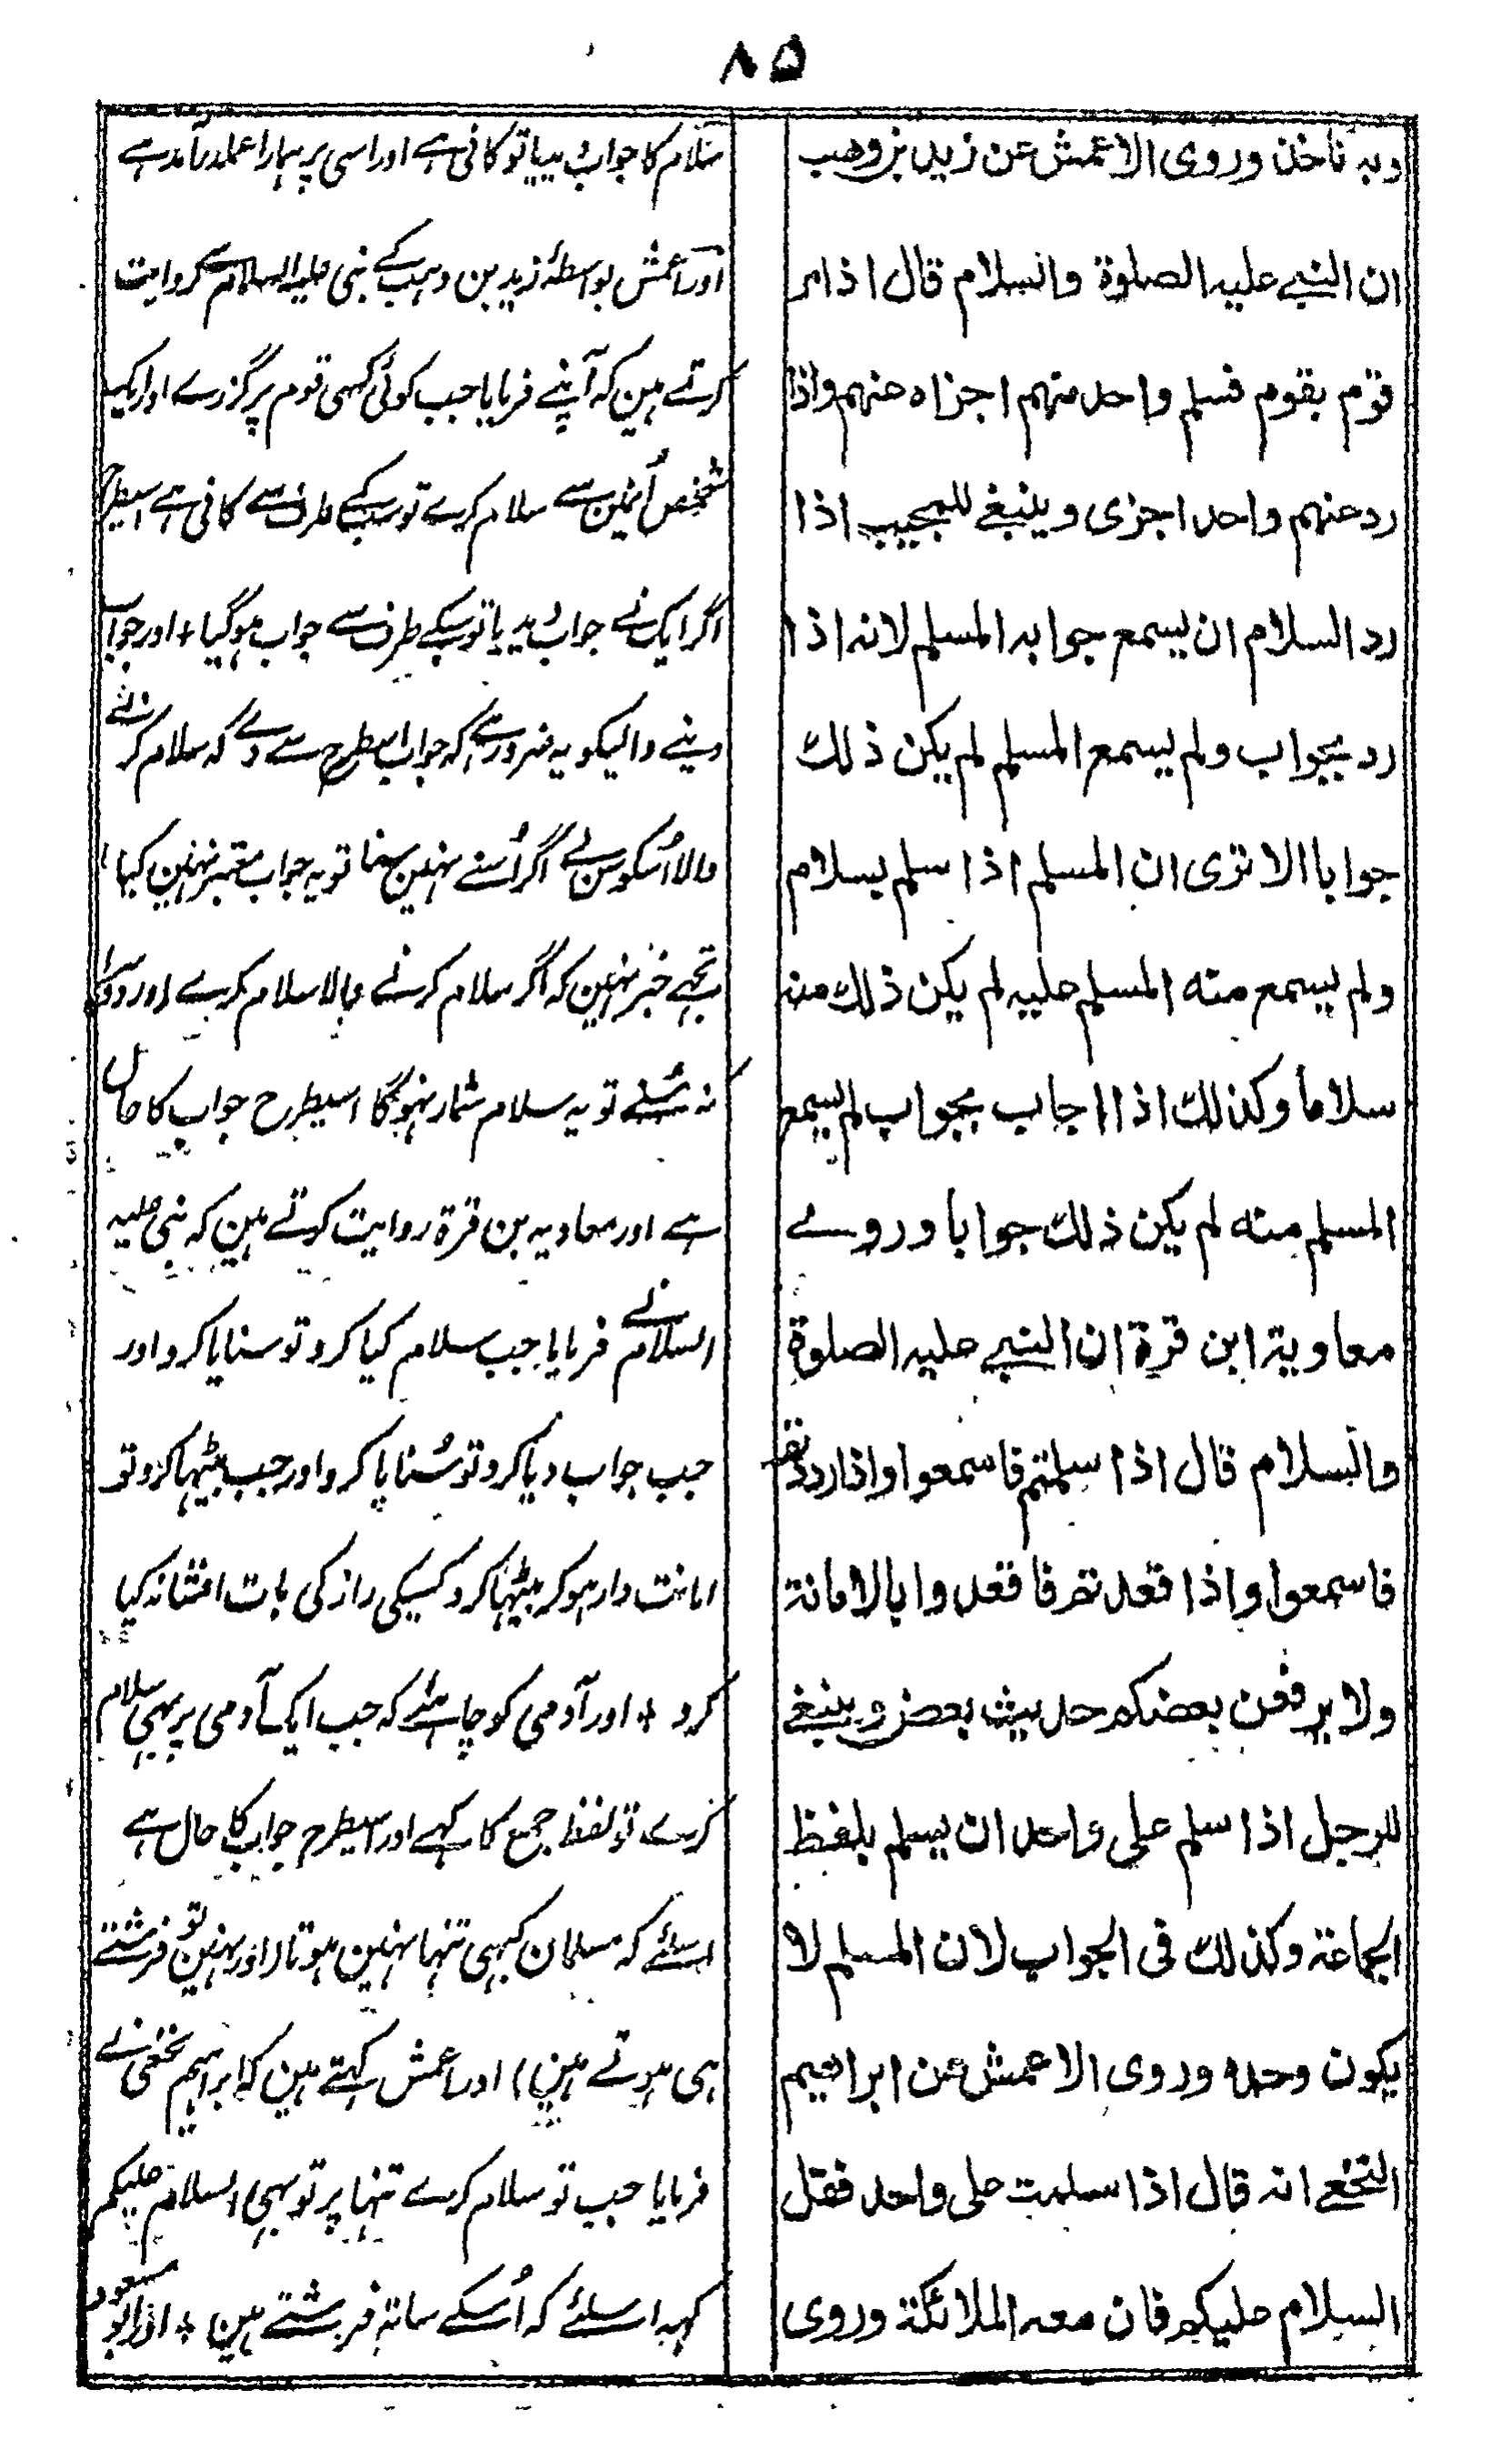 ۸۵
وبه ناخذ وروى الاعمش عن زيد بن وهب
ان النبي عليه الصلوة والسلام قال اذا مر
قوم بقوم فسلم واحد منهم اجزاه عنهم واذا
رد عنهم واحد اجزى وينبغي للمجيب اذا
رد السلام ان يسمع جوابه المسلم لانه اذا
رد بجواب ولم يسمع المسلم لم يكن ذلك
جوابا الا ترى ان المسلم اذا سلم بسلام
ولم يسمع منه المسلم عليه لم يكن ذلك منه
سلاماً وكذلك اذا اجاب بجواب لم يسمع
المسلم منه لم يكن ذلك جوابا وروے
معاوية ابن قرة ان النبي عليه الصلوة
والسلام قال اذا سلمتم فاسمعوا واذا رددتم
فاسمعوا واذا قعدتم فاقعدوا بالامانة
ولا يرفعن بعضكم حديث بعض وينبغي
للرجل اذا سلم على واحد ان يسلم بلفظ
الجماعة وكذلك فى الجواب لان المسلم لا
يكون وحده وروى الاعمش عن ابراهيم
النخعي انه قال اذا سلمت على واحد فقل
السلام عليكم فان معه الملائكة وروى
سلام کا جواب دیدیا تو کافی ہے اور اسی پر ہمارا عملدرآمد ہے
اور اعمش بواسطۂ زید بن وہب کے نبی علیہ السلام سے روایت
کرتے ہین کہ آپنے فرمایا جب کوئی کسی قوم پر گزرے اور ایک
شخص اُنمین سے سلام کرے تو سبکے طرف سے کافی ہے اسیطرح
اگر ایک نے جواب دیدیا تو سبکے طرف سے جواب ہوگیا + اور جواب
دینے والیکو یہ ضرور ہے کہ جواب اسطرح سے دے کہ سلام کرنے
والا اُسکو سن لے اگر اُسنے نہین سنا تو یہ جواب معتبر نہین کیا
تجہے خبر نہین کہ اگر سلام کرنے والا سلام کرے اور دوسرا
نہ سُنے تو یہ سلام شمار نہوگا اسیطرح جواب کا حال
ہے اور معاویہ بن قرۃ روایت کرتے ہین کہ نبی علیہ
السلام نے فرمایا جب سلام کیا کرو تو سنایا کرو اور
جب جواب دیا کرو تو سُنایا کرو اور جب بیٹہا کرو تو
امانت دار ہوکر بیٹہا کرو کسیکی راز کی بات افشا نہ کیا
کرو + اور آدمی کو چاہئے کہ جب ایک آدمی پر بہی سلام
کرے تو لفظ جمع کا کہے اور اسیطرح جواب کا حال ہے
اسلئے کہ مسلمان کبہی تنہا نہین ہوتا (اور نہین تو فرشتے
ہی ہوتے ہین) اور اعمش کہتے ہین کہ ابراہیم نخعی نے
فرمایا جب تو سلام کرے تنہا پر تو بہی السلام علیکم
کہہ اسلئے کہ اُسکے ساتہ فرشتے ہین + اور ابو مسعود